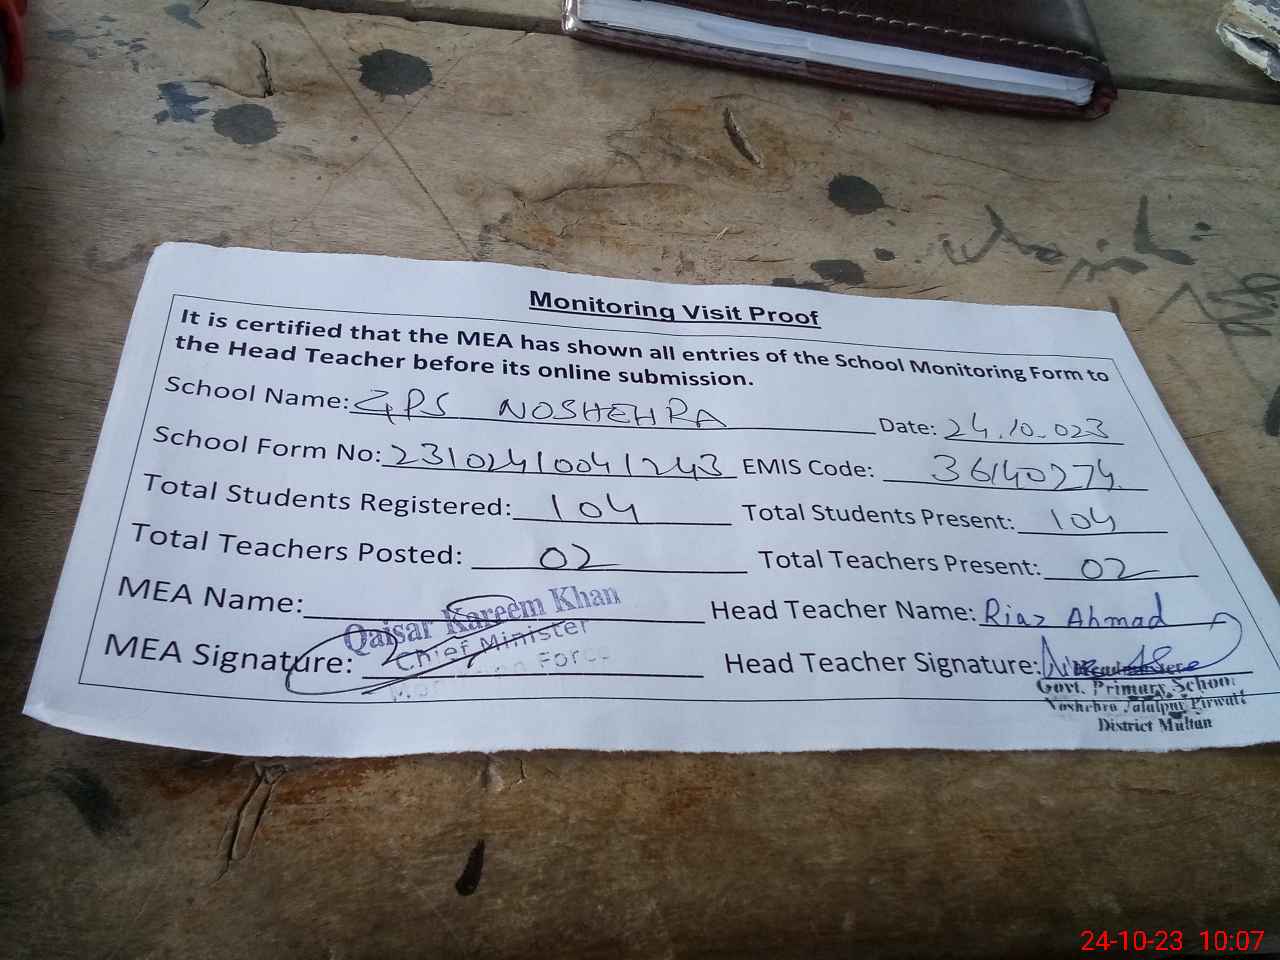 Monitoring Visit Proof
It is certified that the MEA has shown all entries of the School Monitoring Form to
the Head Teacher before its online submission.
School Name: GPS NOSHEHRA Date: 24.10.023
School Form No: 23102410041243 EMIS Code: 36140274
Total Students Registered: 104 Total Students Present: 104
Total Teachers Posted: 02 Total Teachers Present: 02
MEA Name: Qaisar Kareem Khan Head Teacher Name: Riaz Ahmad
Chief Minister
MEA Signature: Head Teacher Signature:
Force
Govt. Primary School
Noshehra Jalalpur Pirwala
District Multan
24-10-23 10:07